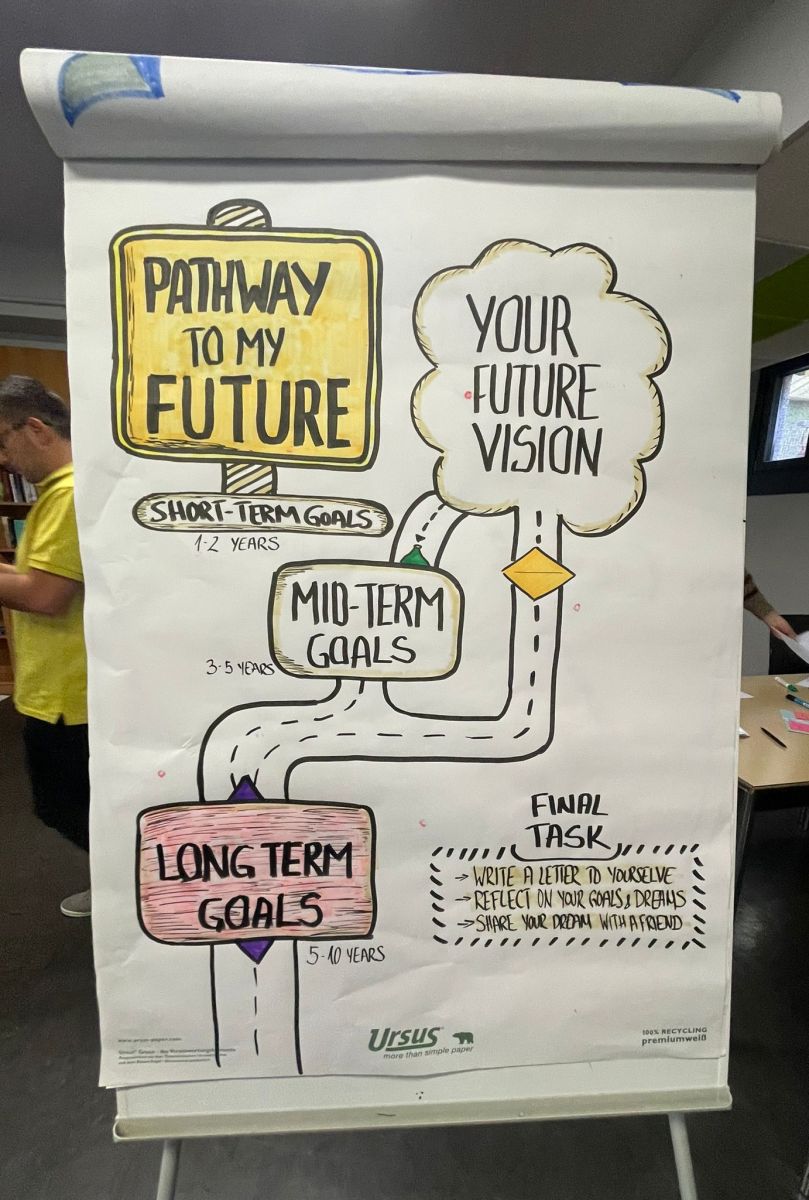 PATHWAY
TO MY
FUTURE
SHORT-TERM GOALS
1-2 YEARS
YOUR
FUTURE
VISION
MID-TERM
GOALS
3-5 YEARS
LONG TERM
GOALS
5-10 YEARS
FINAL
TASK
→ WRITE A LETTER TO YOURSELVE
→ REFLECT ON YOUR GOALS & DREAMS
→ SHARE YOUR DREAM WITH A FRIEND
www.ursus-paper.com
Ursus®
more than simple paper
100% RECYCLING
premiumweiß